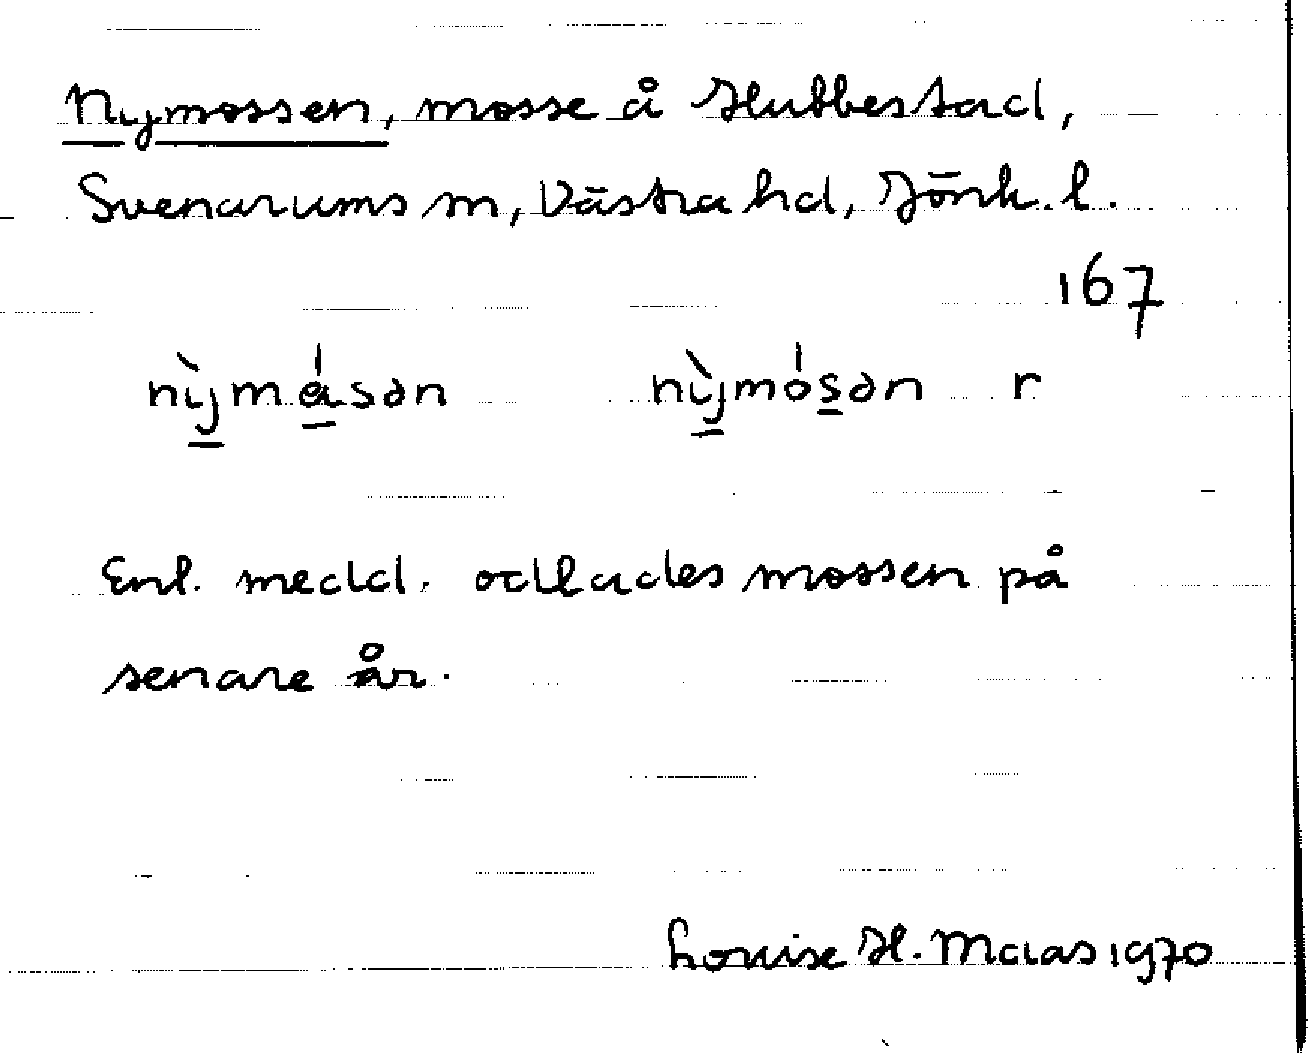 Nymossen, mosse å Hubbestad,
Svenarums sn, Västra hd, Jönk. l.
167
nìjmåsən nìjmósən r
Enl. medd. odlades mossen på
senare år.
Louise H. Maas 1970